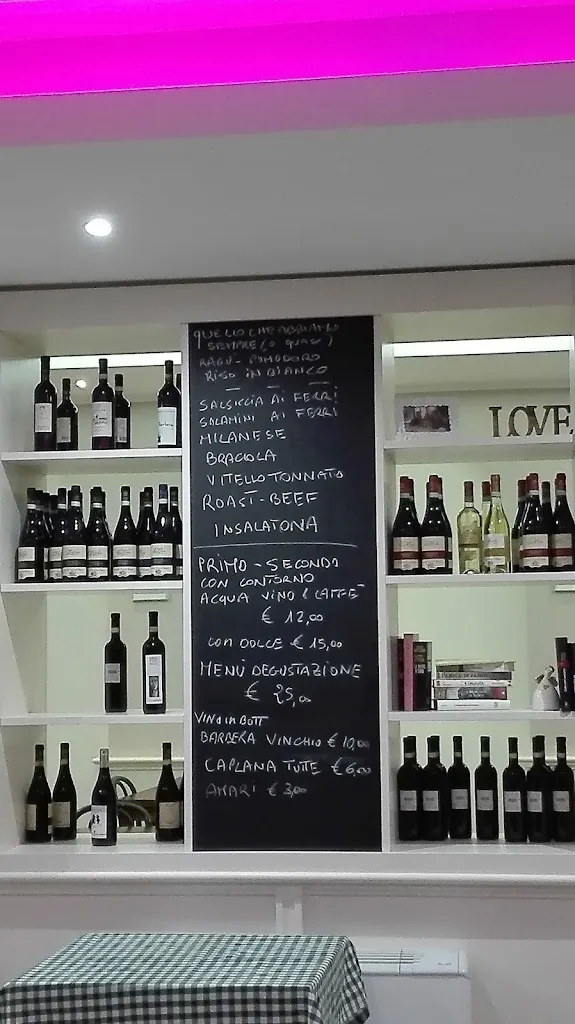 QUELLO CHE ABBIAMO
SEMPRE (O QUASI)
RAGÙ - POMODORO
RISO IN BIANCO
SALSICCIA AI FERRI
SALAMINI AI FERRI
MILANESE
BRACIOLA
VITELLO TONNATO
ROAST-BEEF
INSALATONA
PRIMO - SECONDO
CON CONTORNO
ACQUA VINO E CAFFÈ
€ 12,00
CON DOLCE € 15,00
MENÙ DEGUSTAZIONE
€ 25,00
VINO IN BOTT
BARBERA VINCHIO € 10,00
CAPLANA TUTTE € 6,00
AMARI € 3,00
LOVE